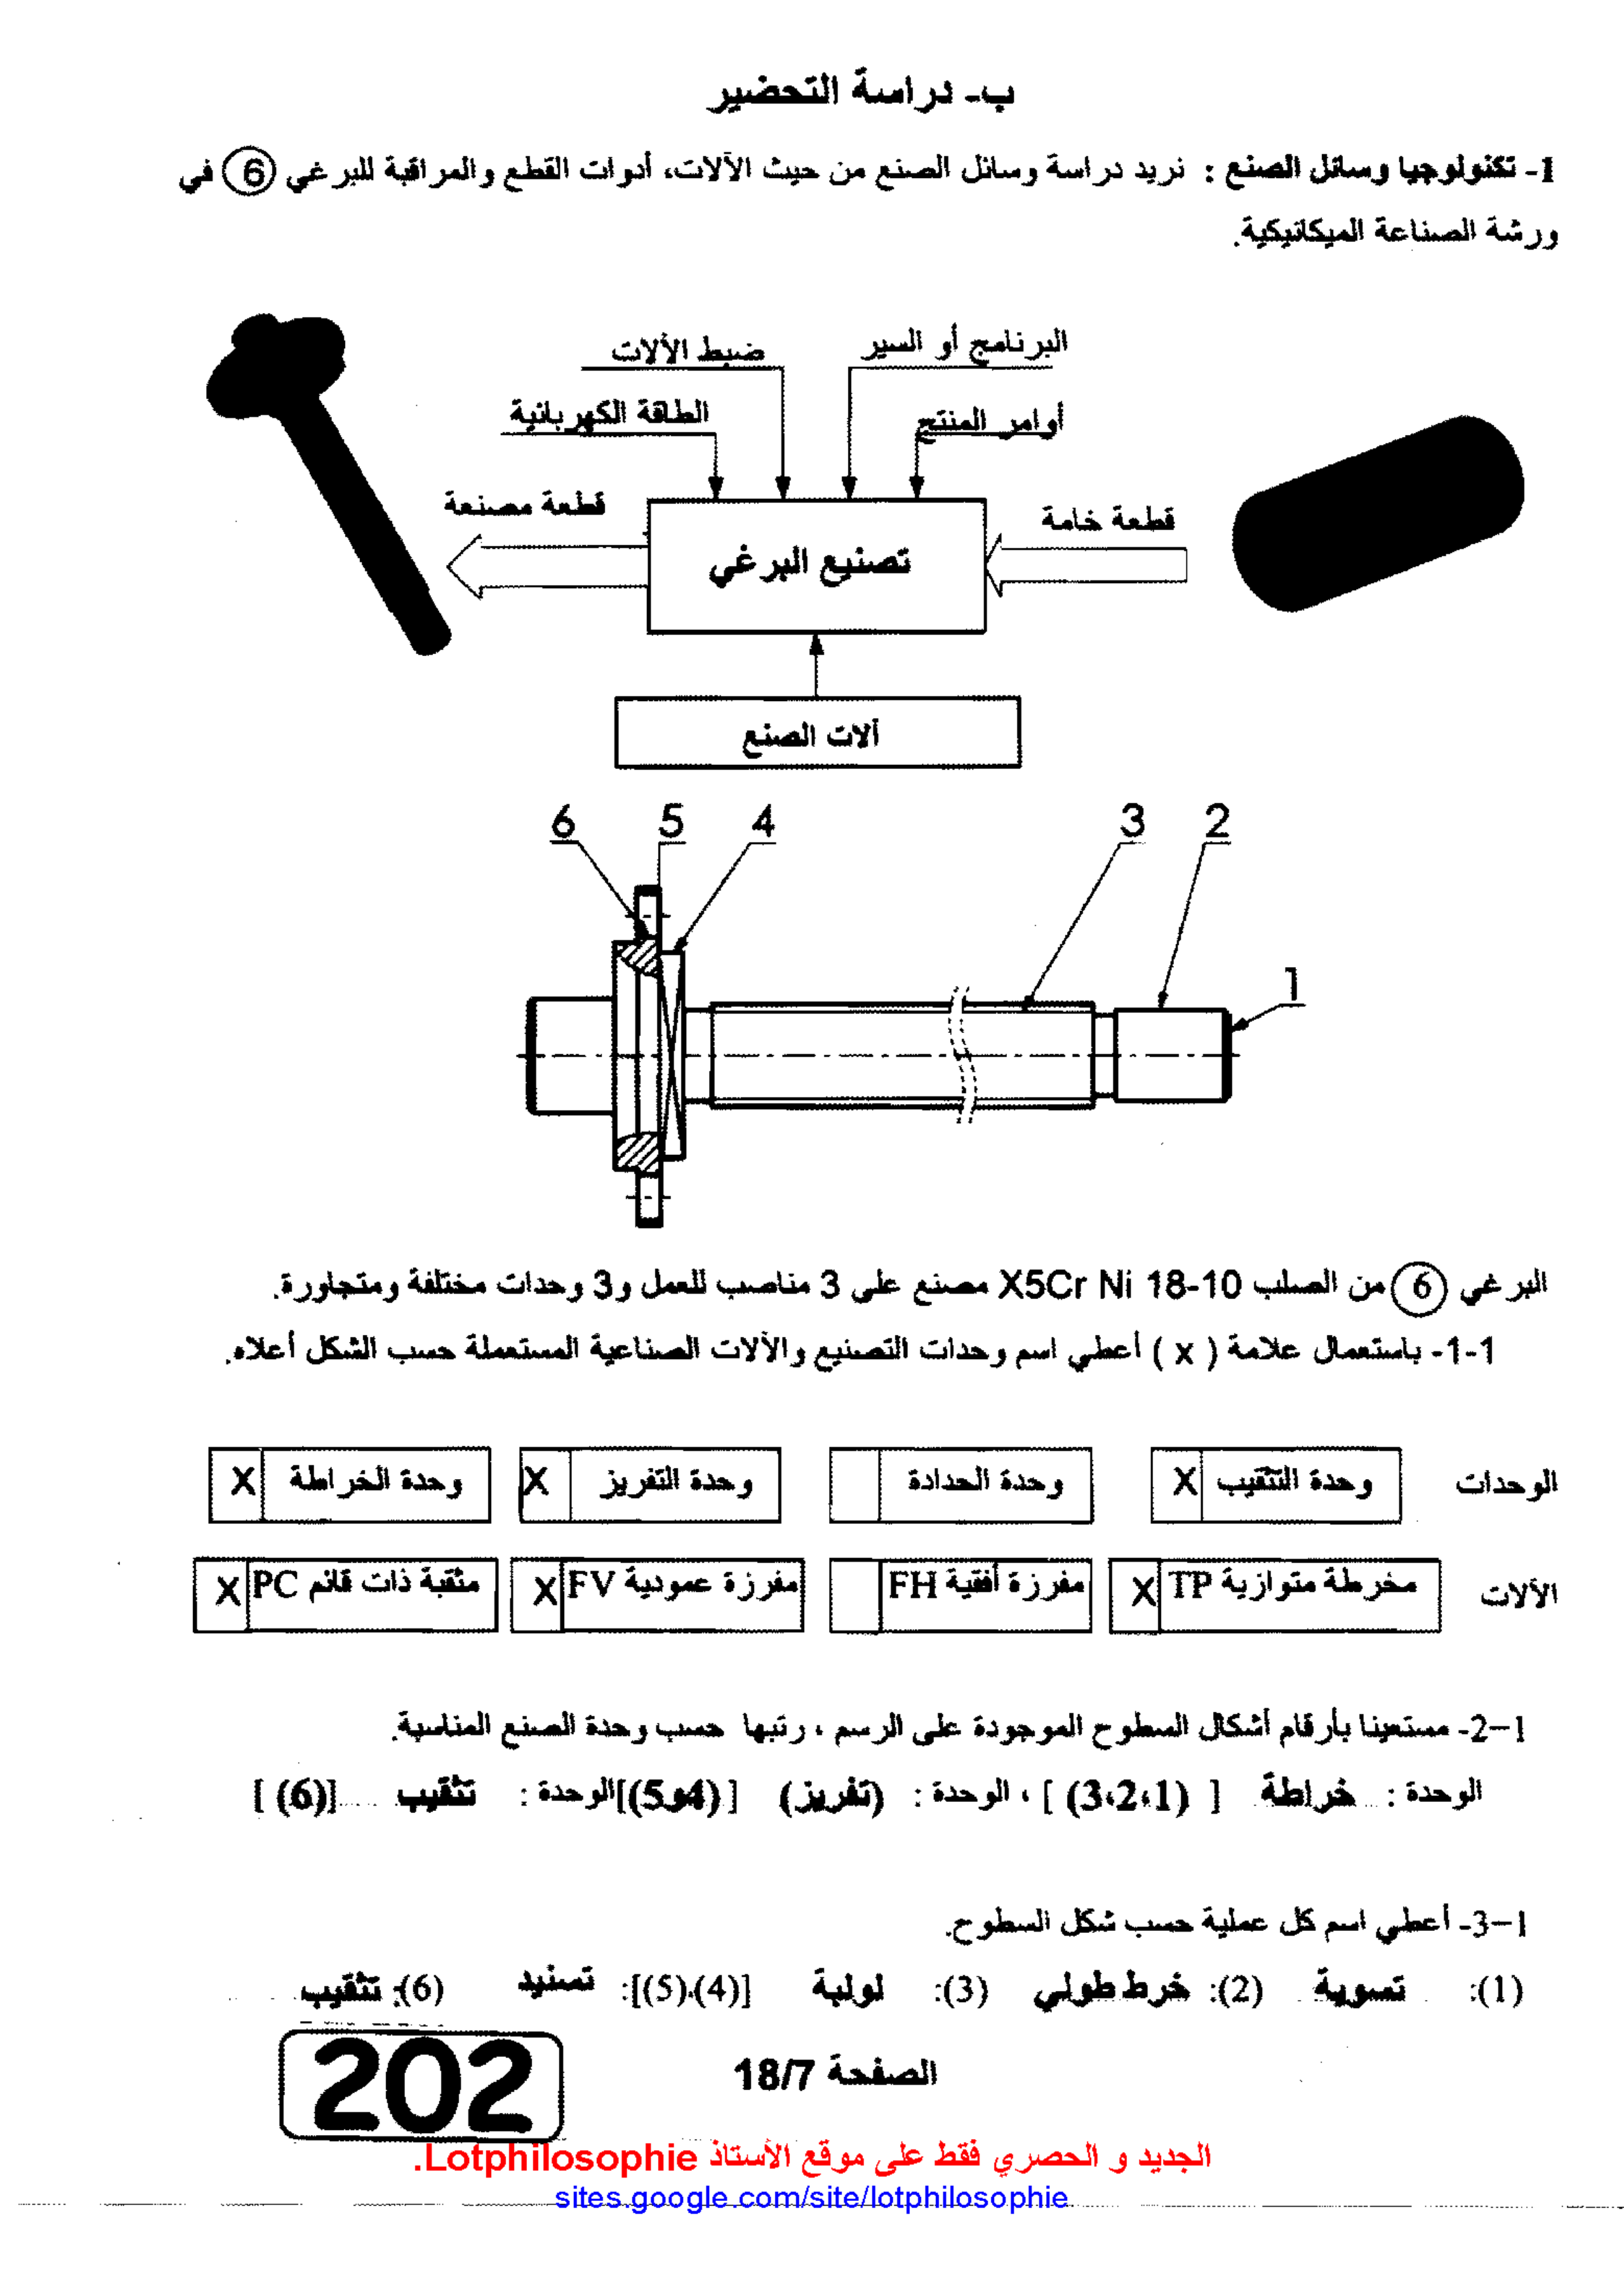 ب- دراسة التحضير
1- تكنولوجيا وسائل الصنع : نريد دراسة وسائل الصنع من حيث الآلات، أدوات القطع والمراقبة للبرغي 6 في
ورشة الصناعة الميكانيكية.
البرنامج أو السير
ضبط الآلات
أوامر المنتج
الطاقة الكهربائية
قطعة خامة
تصنيع البرغي
قطعة مصنعة
آلات الصنع
6 5 4 3 2
1
البرغي 6 من الصلب X5Cr Ni 18-10 مصنع على 3 مناصب للعمل و3 وحدات مختلفة ومتجاورة.
1-1- باستعمال علامة ( x ) أعطي اسم وحدات التصنيع والآلات الصناعية المستعملة حسب الشكل أعلاه.
الوحدات وحدة التثقيب X وحدة الحدادة وحدة التفريز X وحدة الخراطة X
الآلات مخرطة متوازية TP X مفرزة أفقية FH مفرزة عمودية FV X مثقبة ذات قائم PC X
1-2- مستعينا بأرقام أشكال السطوح الموجودة على الرسم ، رتبها حسب وحدة الصنع المناسبة.
الوحدة : خراطة [ (3،2،1) ] ، الوحدة : (تفريز) [ (4و5)] الوحدة : تثقيب [(6) ]
1-3- أعطي اسم كل عملية حسب شكل السطوح.
(1): تسوية (2): خرط طولي (3): لولبة [(4)،(5)]: تسنيد (6): تثقيب
202
الصفحة 18/7
الجديد و الحصري فقط على موقع الأستاذ Lotphilosophie.
sites.google.com/site/lotphilosophie